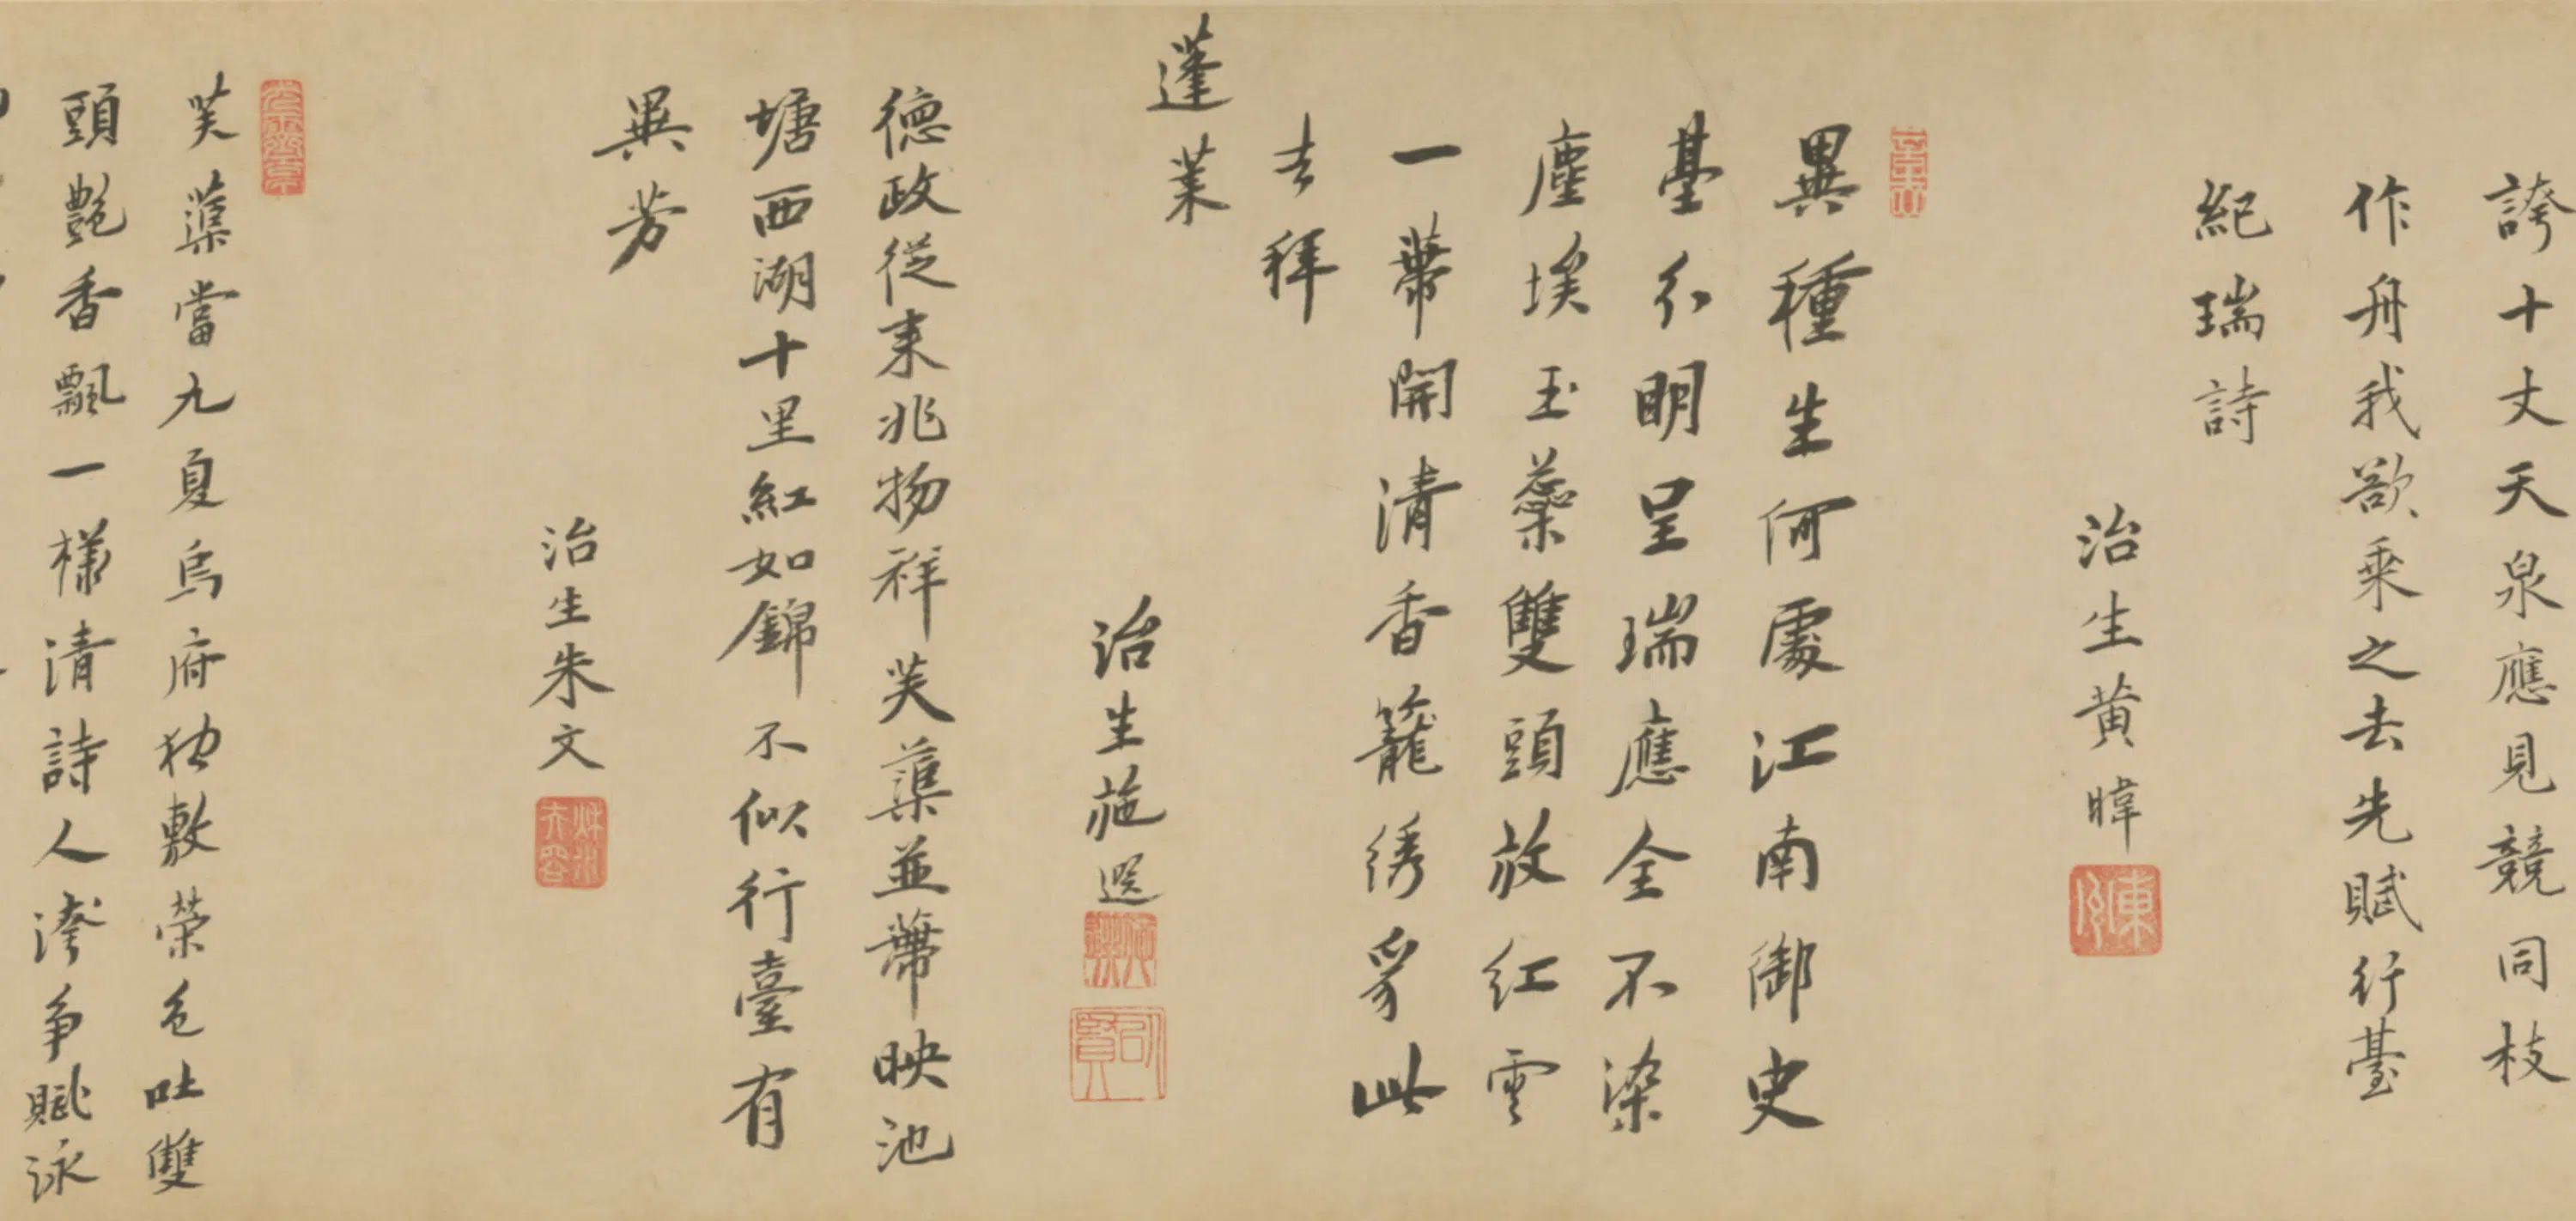 誇十丈天泉應見競同枝
作舟我欲乘之去先賦行臺
紀瑞詩
治生黄暐
異種生何處江南御史
臺分明呈瑞應全不染
塵埃玉蘂雙頭放紅雲
一蒂開清香籠綉豸此
去拜
蓬萊
治生施遜
德政從來兆物祥芙蕖並蒂映池
塘西湖十里紅如錦不似行臺有
異芳
治生朱文
芙蕖當九夏烏府独敷榮色吐雙
頭艷香飄一樣清詩人誇爭賦詠